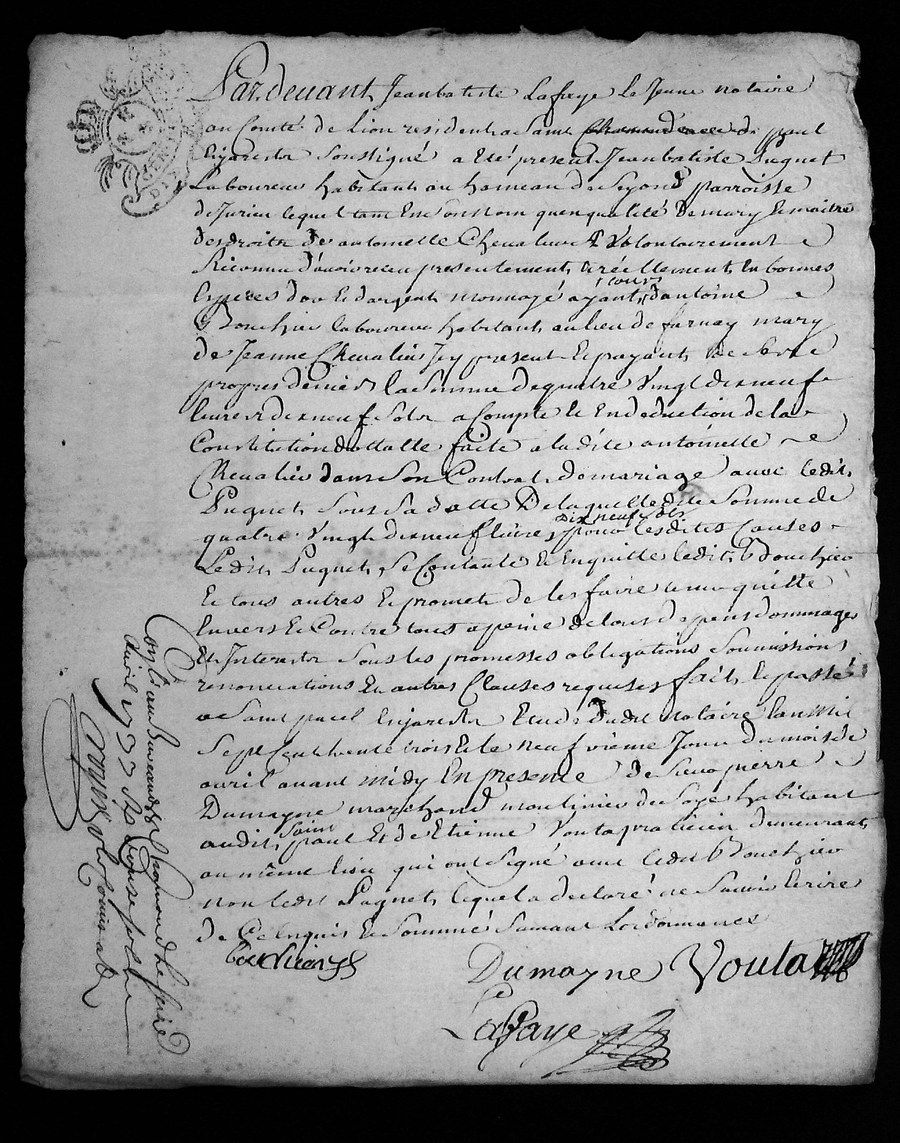 Par devant Jean batiste Lafaye Le Jeune notaire
au Comté de Lion resident a Saint paul
En jarestz soussigné a Eté present Jean batiste puquet
Laboureur habitant au hameau de parroisse
de Jurieu lequel tant En son nom qu'en qualité de mary Et maitre
des droits de antoinette Chevalier a volontairement
Reconnu d'avoir receu presentement & réellement en bonnes
Espèces d'or Et d'argent monnayé ayant cours d'antoine
Bouchier laboureur habitant au lieu de farnay mary
de Jeanne Chevalier Icy present Et payant de ses
propres deniers la Somme de quatre vingt dix neuf
livres dix neuf Sols a Compte Et En deduction de la
Constitution dottalle faite a ladite antoinette
Chevalier dans Son Contrat de mariage avec ledit
Puquet Sous Sa datte De laquelle dite Somme de
quatre vingt dix neuf livres dix neuf sols pour lesdites Causes
Ledit Puquet Se Contante Et En quitte ledit Bouchier
Et tous autres Et promet de les faire tenir quitte
Envers Et Contre tous a peine de tous depens dommages
Et Interestz Sous les promesses obligations Soumissions
renonciations Et autres Clauses requises fait Et passé
a Saint paul En jarestz Etude dudit notaire l'an mil
Sept Cent trente trois Et le neufvieme Jour du mois de
avril avant midy En presence de Sieur pierre
Dumayne marchand moulinier de Soye habitant
audit Saint paul Et de Etienne Vouta praticien demeurant
au même lieu qui ont Signé avec ledit Bouchier
non ledit Puquet lequel a declaré ne Savoir Ecrire
de Ce Enquis Et Sommé Suivant L'ordonnance
Dumayne Vouta
Lafaye
avril 1733